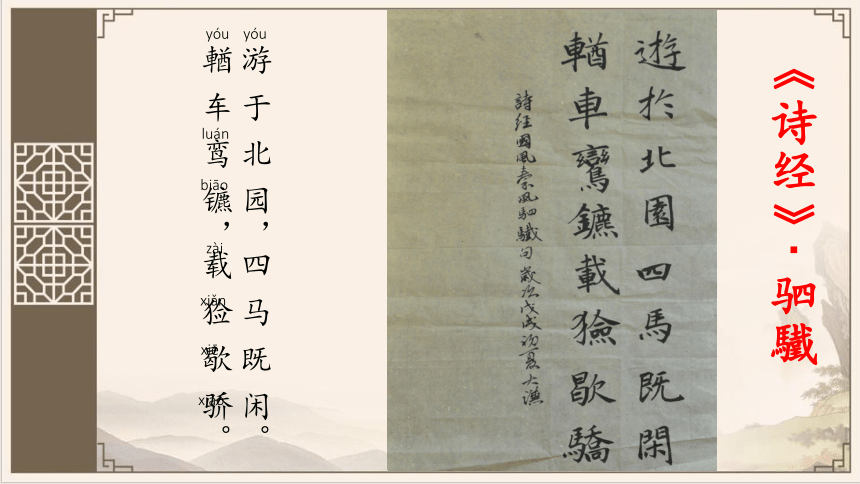 《诗经》·驷驖
遊於北園四馬既閑
輶車鸞鑣載獫歇驕
詩經國風秦風駟驖句 歲次戊戌初夏大濂
yóu yóu
游于北园，四马既闲。
輶车鸾镳，载猃歇骄。
luán
biāo
zài
xiǎn